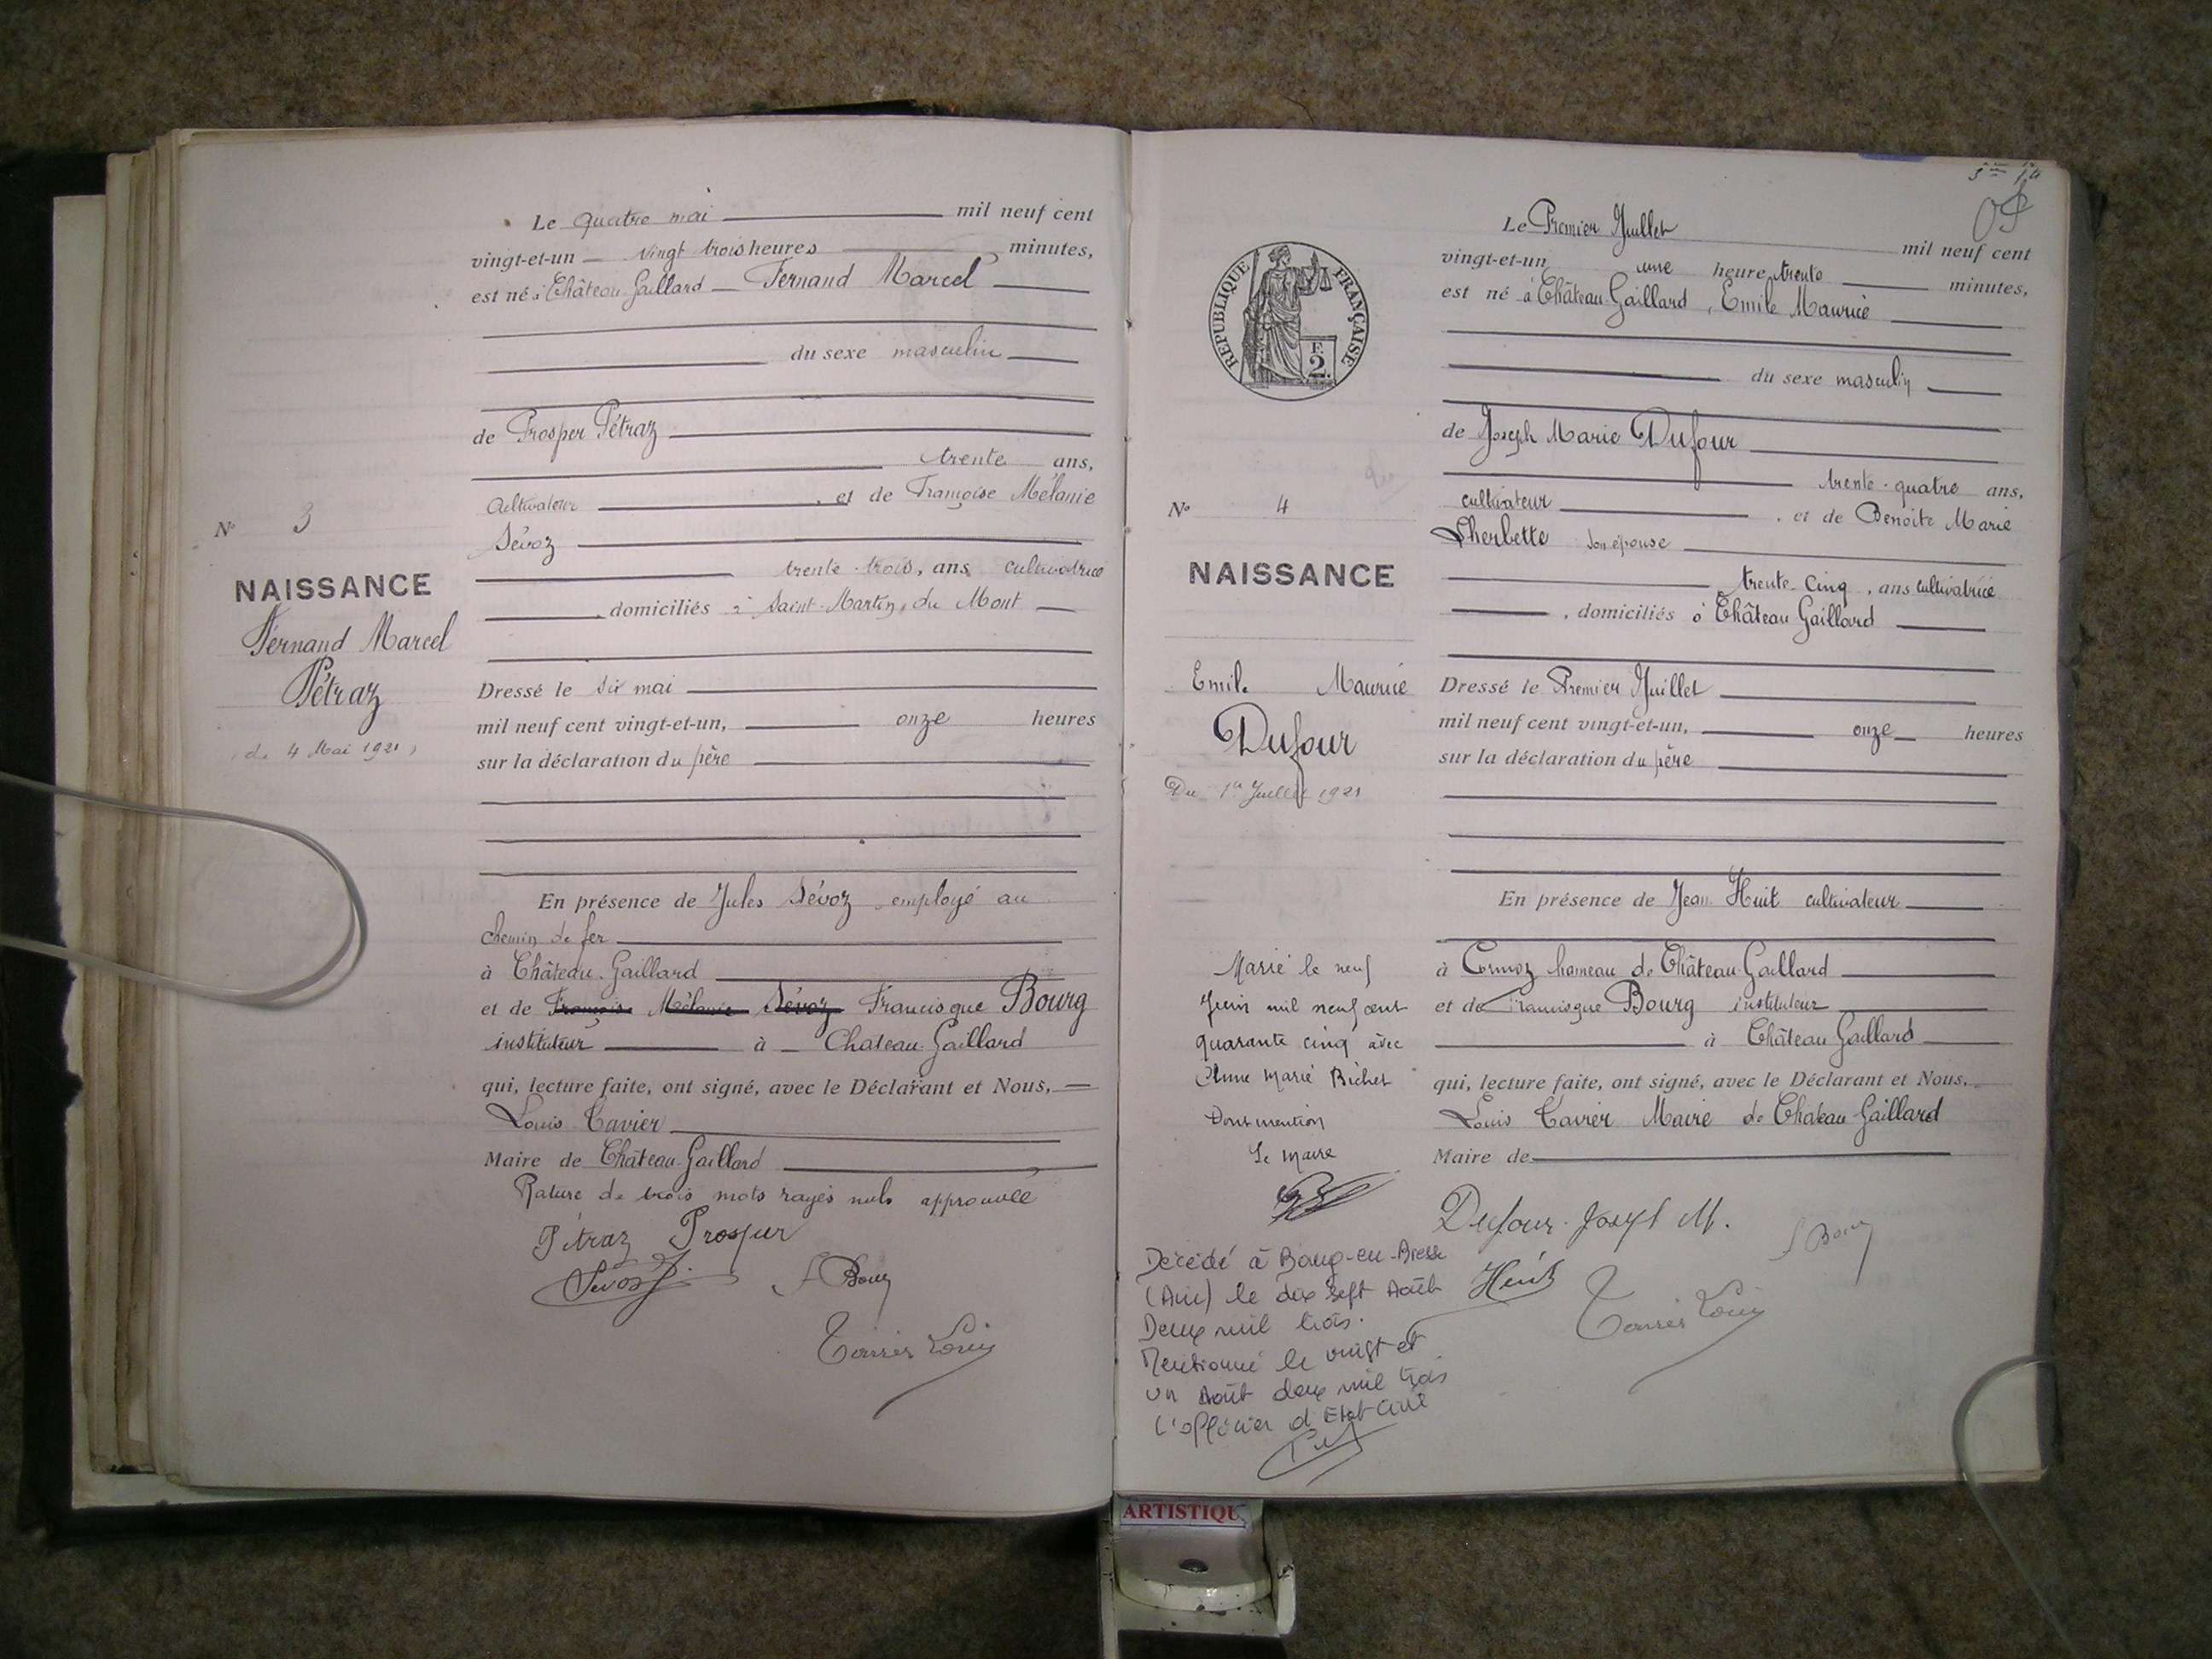 Le quatre mai mil neuf cent
vingt-et-un vingt trois heures minutes,
est né à Château-Gaillard Fernand Marcel
du sexe masculin
de Prosper Pétraz
trente ans,
cultivateur, et de Françoise Mélanie
Sévoz
trente-trois, ans cultivatrice
domiciliés à Saint-Martin-du Mont
Nº 3
NAISSANCE
Fernand Marcel
Pétraz
du 4 Mai 1921
Dressé le six mai
mil neuf cent vingt-et-un, onze heures
sur la déclaration du père
En présence de Jules Sévoz employé au
chemin de fer
à Château-Gaillard
et de Françoise Mélanie Sévoz Francisque Bourg
instituteur à Chateau-Gaillard
qui, lecture faite, ont signé, avec le Déclarant et Nous,
Louis Tavier
Maire de Château-Gaillard
Rature de trois mots rayés nuls approuvée
Pétraz Prosper
Sevoz J.
F Bourg
Tavier Louis
RÉPUBLIQUE FRANÇAISE
F. 2
Le Premier Juillet mil neuf cent
vingt-et-un une heure trente minutes,
est né à Château-Gaillard, Emile Maurice
du sexe masculin
de Joseph Marie Dufour
trente-quatre ans,
cultivateur, et de Benoite Marie
Lherbette son épouse
trente-cinq, ans cultivatrice
, domiciliés à Château-Gaillard
Nº 4
NAISSANCE
Emile Maurice
Dufour
Du 1er Juillet 1921
Dressé le Premier Juillet
mil neuf cent vingt-et-un, onze heures
sur la déclaration du père
En présence de Jean Huit cultivateur
à Cormoz hameau de Château-Gaillard
et de Francisque Bourg instituteur
à Château-Gaillard
qui, lecture faite, ont signé, avec le Déclarant et Nous,
Louis Tavier Maire de Château-Gaillard
Maire de
Marié le neuf
Juin mil neuf cent
quarante cinq avec
Anne Marie Bichet
Dont mention
Le Maire
Dufour Joseph M.
F Bourg
Huit
Tavier Louis
Décédé à Bourg-en-Bresse
(Ain) le dix sept Août
Deux mil trois.
Mentionné le vingt et
un Août deux mil trois
L'officier d'Etat Civil
ARTISTIQU